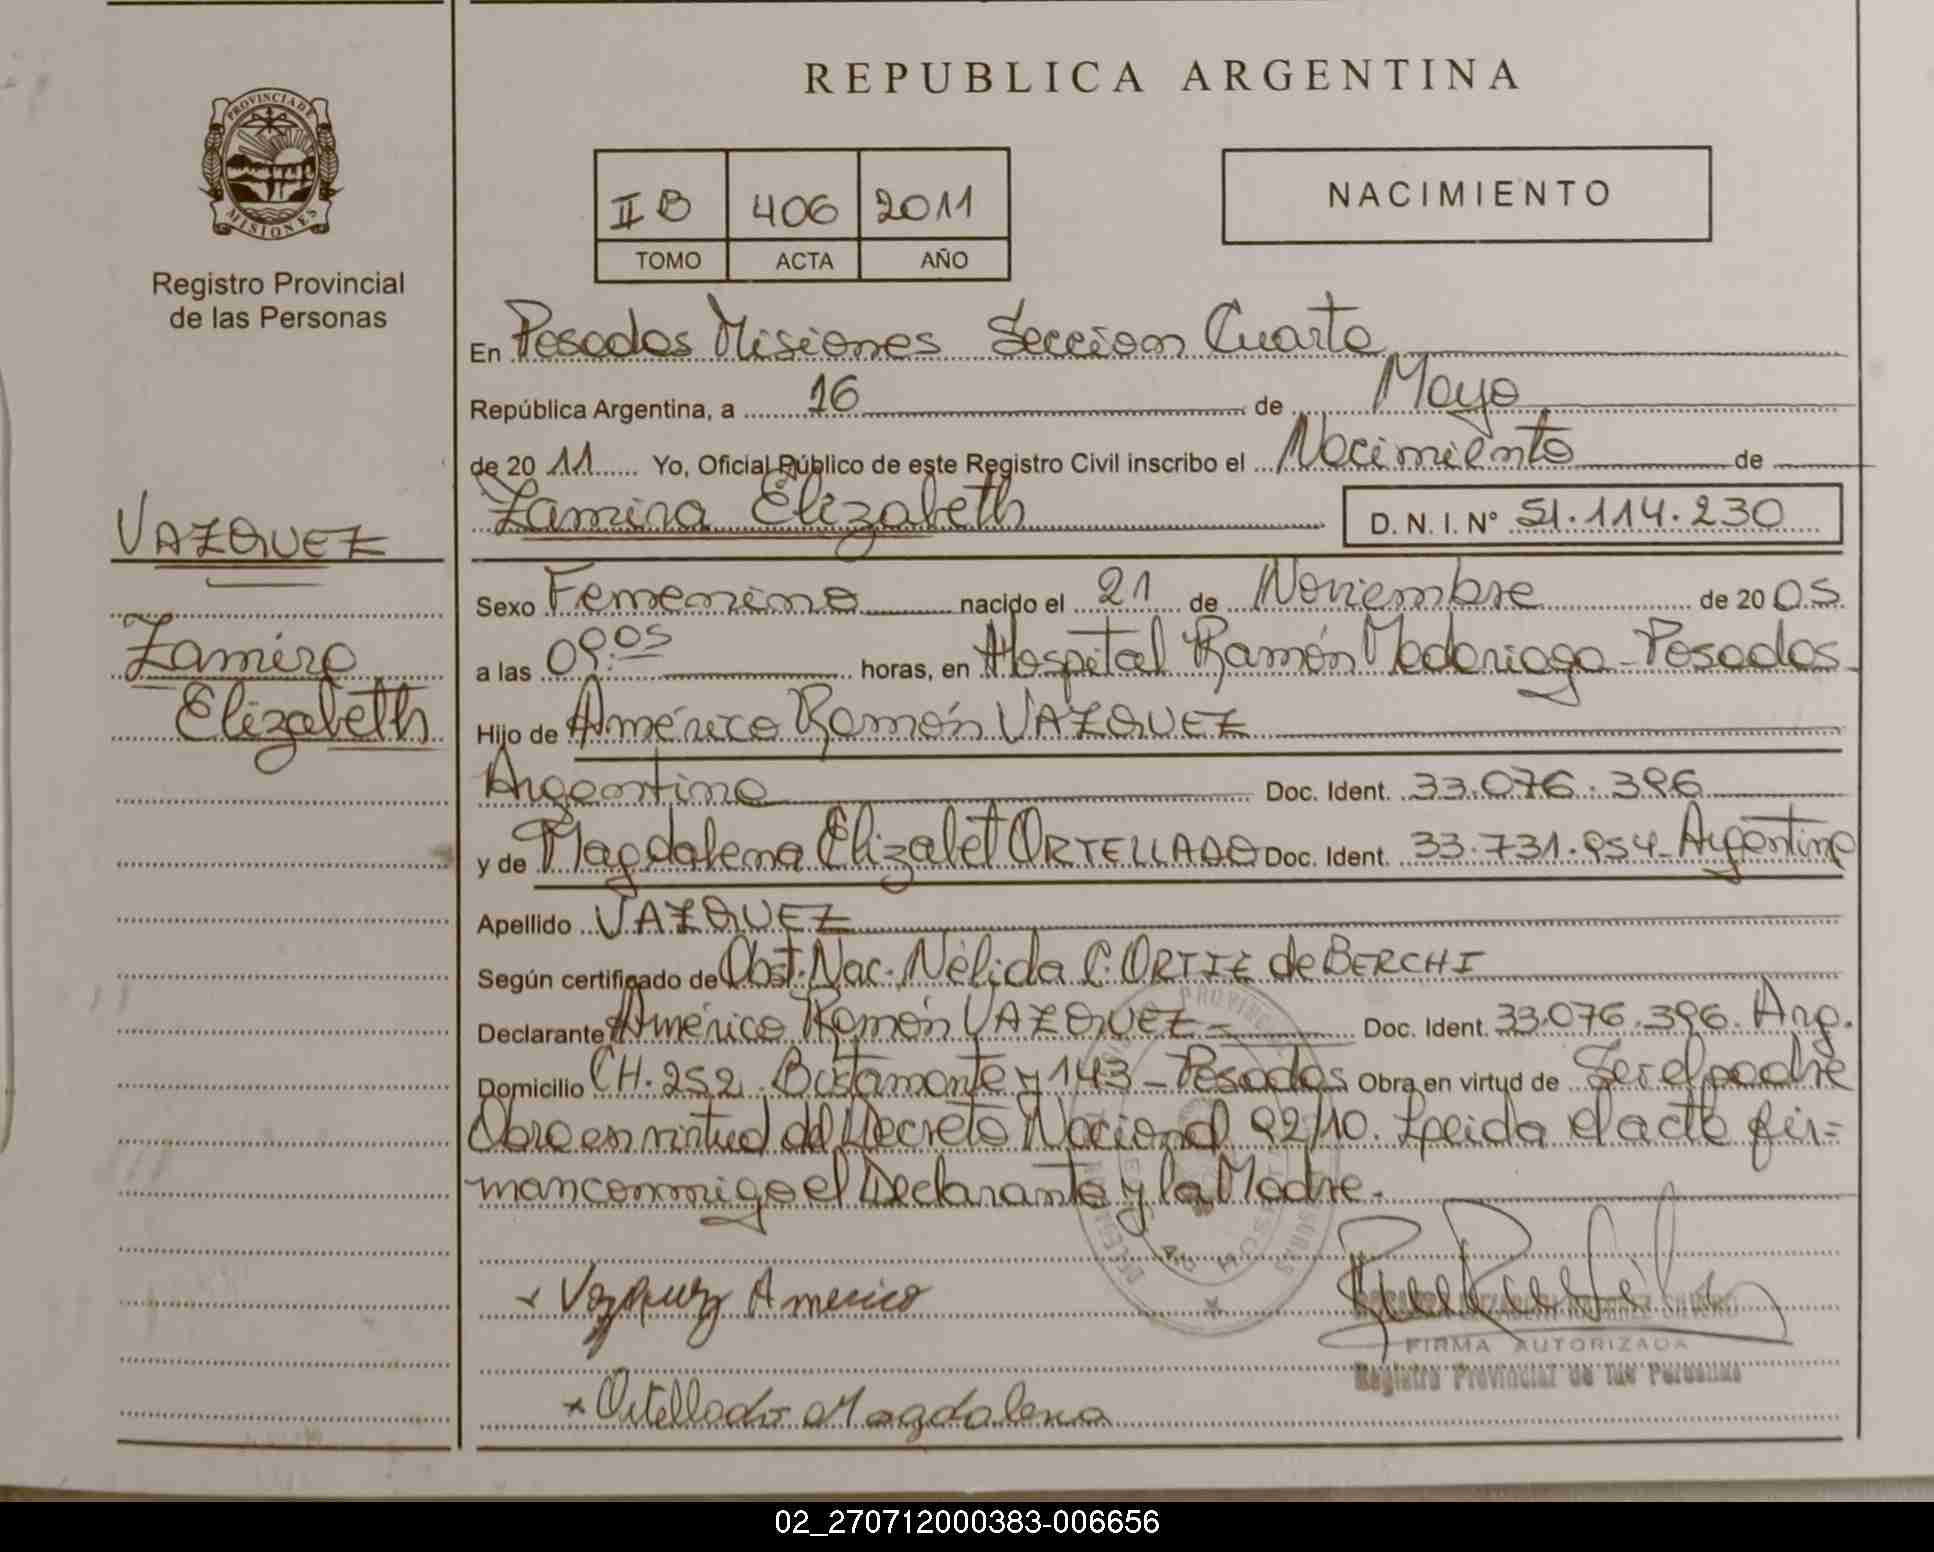 REPUBLICA ARGENTINA
PROVINCIA DE
MISIONES
Registro Provincial
de las Personas
II B 406 2011
TOMO ACTA AÑO
NACIMIENTO
En Posadas Misiones Seccion Cuarta
República Argentina, a 16 de Mayo
de 20 11 Yo, Oficial Público de este Registro Civil inscribo el Nacimiento de
Zamira Elizabeth
D. N. I. N° 51.114.230
VAZQUEZ
Zamira
Elizabeth
Sexo Femenino nacido el 21 de Noviembre de 20 05
a las 09.05 horas, en Hospital Ramón Madariaga - Posadas
Hijo de Américo Ramón VAZQUEZ
Argentino Doc. Ident. 33.076.396
y de Magdalena Elizabet ORTELLADO Doc. Ident. 33.731.954 - Argentina
Apellido VAZQUEZ
Según certificado de Obst. Nac. Nélida C. ORTIZ de BERCHI
Declarante Américo Ramón VAZQUEZ - Doc. Ident. 33.076.396. Arg.
Domicilio CH. 252. Bustamante y 143 - Posadas Obra en virtud de Ser el padre
Obra en virtud del Decreto Nacional 92/10. Leida el acta fir=
man conmigo el Declarante y la Madre.
x Vazquez Americo
FIRMA AUTORIZADA
Registro Provincial de las Personas
x Ortellado Magdalena
02_270712000383-006656